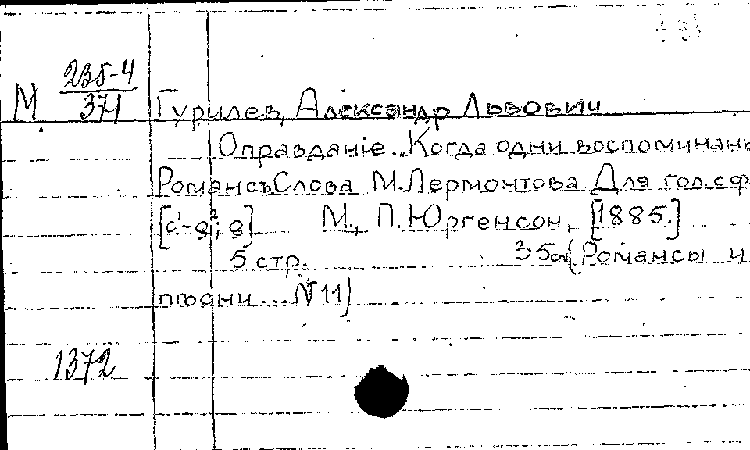 М 235-4
371
Гурилев, Александр Львович
Оправданіе. „Когда одни воспоминань
Романсъ Слова М. Лермонтова Для гол. с ф
[c¹-g²; g] М., П. Юргенсон, [1885.]
5 стр. 35см (Романсы и
пѣсни ... № 11)
1372